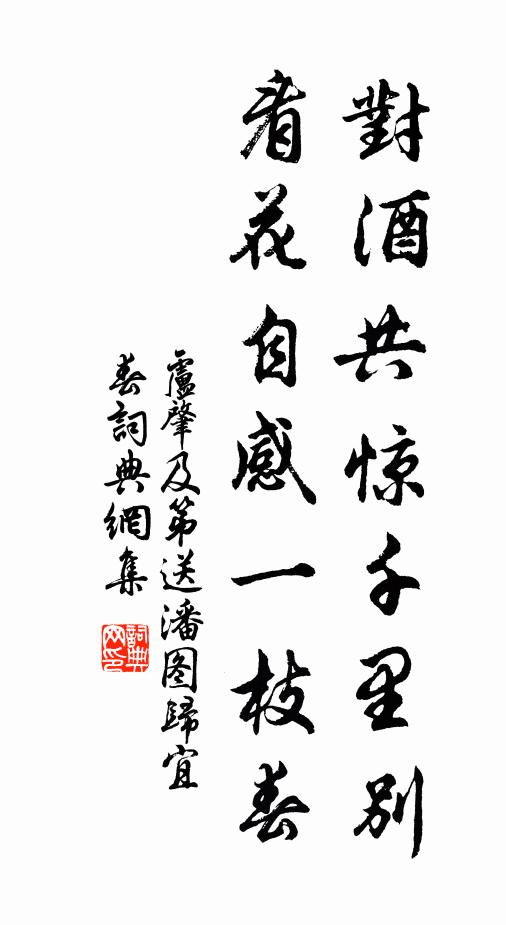 對酒共惊千里别
看花自感一枝春
盧肇及第送潘图歸宜
春詞典網集
詞典
网印